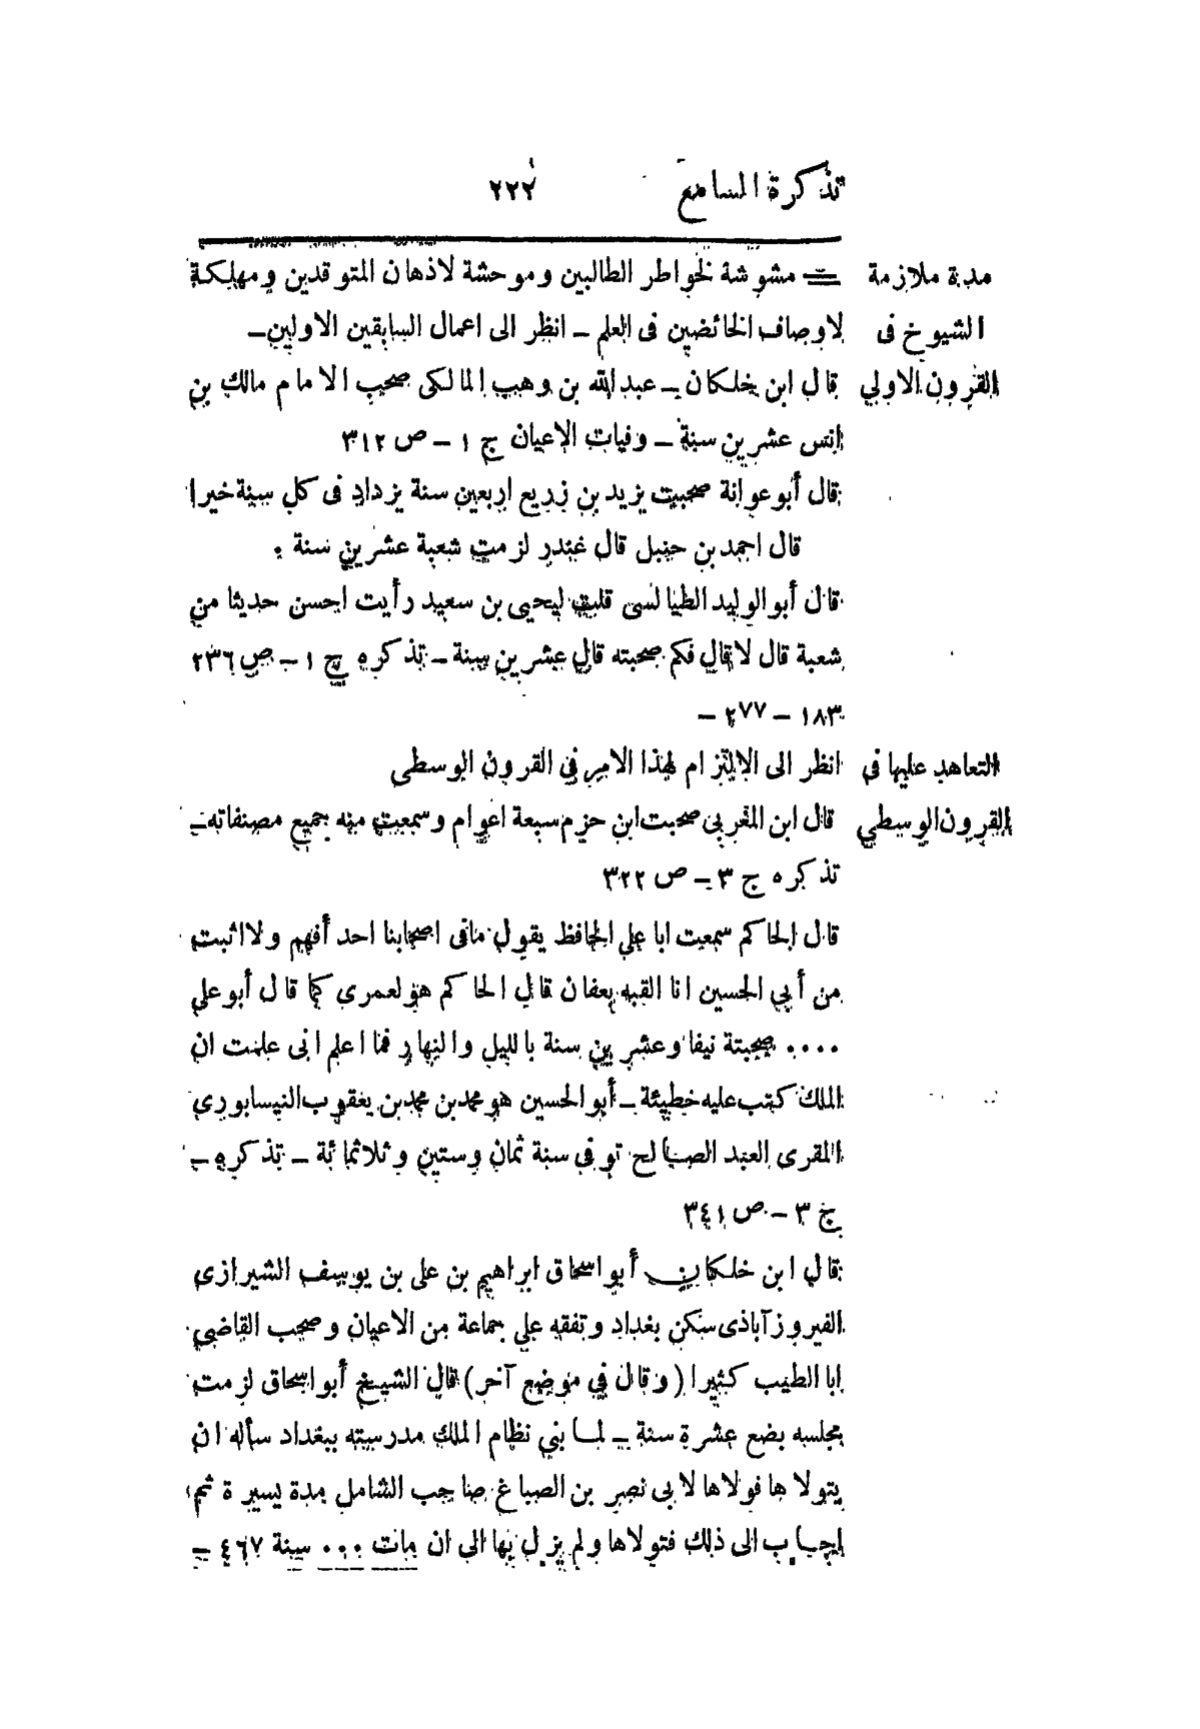 تذكرة السامع ٢٢٢
مدة ملازمة = مشوشة لخواطر الطالبين وموحشة لاذهان المتوقدين ومهلكة
الشيوخ فى لاوصاف الخائضين فى العلم – انظر الى اعمال السابقين الاولين–
القرون الاولي قال ابن خلكان – عبد الله بن وهب المالكى صحب الامام مالك بن
انس عشرين سنة – وفيات الاعيان ج ١ – ص ٣١٢
قال أبو عوانة صحبت يزيد بن زريع اربعين سنة يزداد فى كل سنة خيرا
قال احمد بن حنبل قال غندر لزمت شعبة عشرين سنة .
قال أبو الوليد الطيالسى قلت ليحيى بن سعيد رأيت احسن حديثا من
شعبة قال لا قال فكم صحبته قال عشرين سنة – تذكره ج ١ – ص ٢٣٦
١٨٣ – ٢٧٧ –
التعاهد عليها فى انظر الى الالتزام لهذا الامر فى القرون الوسطى
القرون الوسطي قال ابن المغربى صحبت ابن حزم سبعة اعوام وسمعت منه جميع مصنفاته–
تذكره ج ٣ – ص ٣٢٢
قال الحاكم سمعت ابا على الحافظ يقول مافى اصحابنا احد أفهم ولا اثبت
من أبي الحسين انا القبه بعفان قال الحاكم هو لعمرى كما قال أبو على
.... صحبتة نيفا وعشرين سنة بالليل والنهار فما اعلم انى علمت ان
الملك كتب عليه خطيئة – أبو الحسين هو محمد بن محمد بن يعقوب النيسابورى
المقرى العبد الصالح توفى سنة ثمان وستين وثلاثمائة – تذكره –
ج ٣ – ص ٣٤١
قال ابن خلكان أبو اسحاق ابراهيم بن على بن يوسف الشيرازى
الفيروزآباذى سكن بغداد وتفقه على جماعة من الاعيان وصحب القاضى
ابا الطيب كثيرا (وقال في موضع آخر) قال الشيخ أبو اسحاق لزمت
مجلسه بضع عشرة سنة – لما بني نظام الملك مدرسته ببغداد سأله ان
يتولاها فولاها لابى نصر بن الصباغ صاحب الشامل مدة يسيرة ثم
اجاب الى ذلك فتولاها ولم يزل بها الى ان مات ... سنة ٤٦٧ –